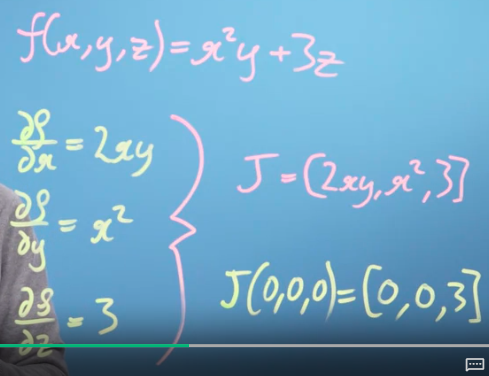 f(x,y,z)=x²y+3z
∂f/∂x = 2xy
∂f/∂y = x²
∂f/∂z = 3
J = [2xy, x², 3]
J(0,0,0)=[0,0,3]